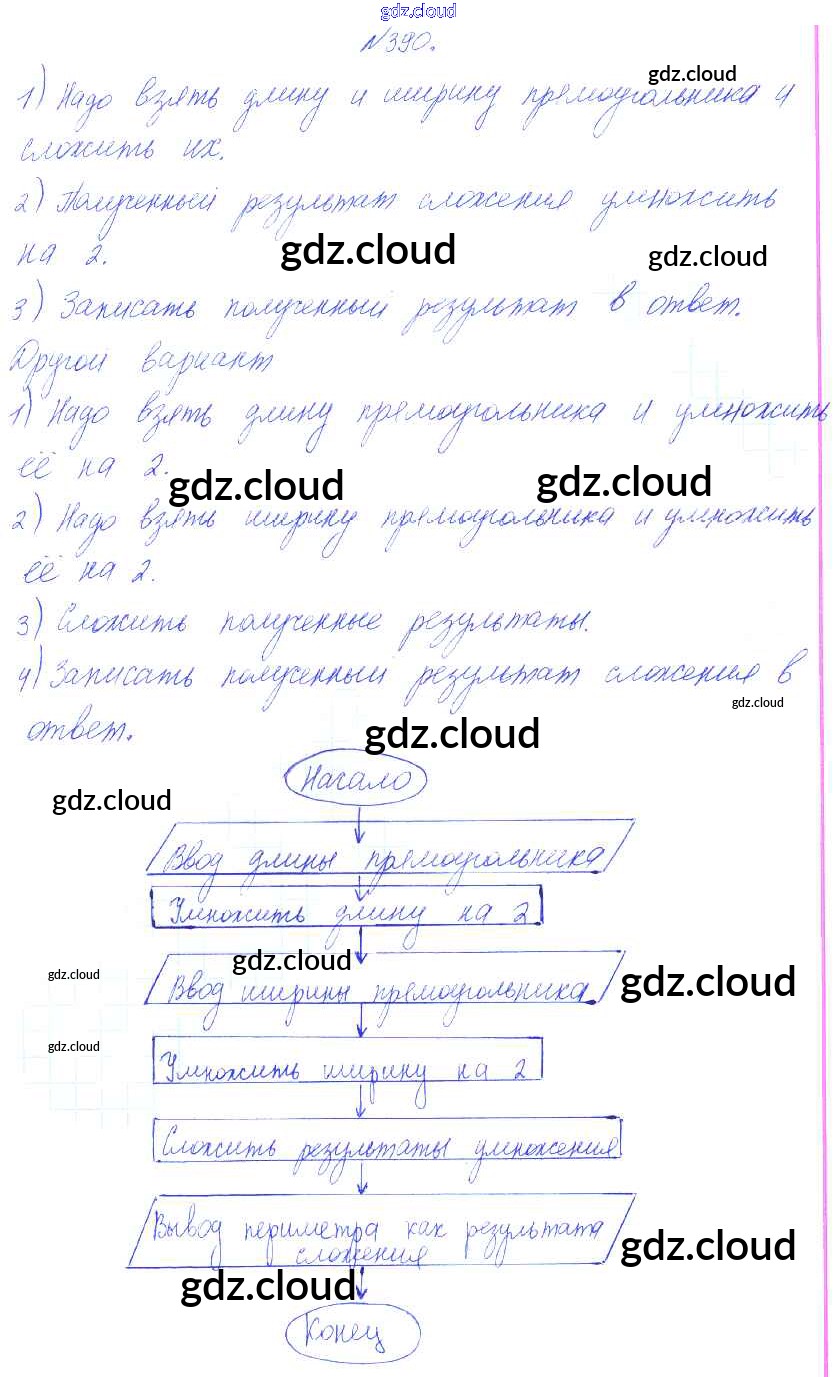 gdz.cloud
№390.
gdz.cloud
1) Надо взять длину и ширину прямоугольника и
сложить их.
2) Полученный результат сложения умножить
на 2.
gdz.cloud
gdz.cloud
3) Записать полученный результат в ответ.
Другой вариант
1) Надо взять длину прямоугольника и умножить
её на 2.
gdz.cloud
gdz.cloud
2) Надо взять ширину прямоугольника и умножить
её на 2.
3) Сложить полученные результаты.
4) Записать полученный результат сложения в
gdz.cloud
ответ.
gdz.cloud
Начало
gdz.cloud
Ввод длины прямоугольника
Умножить длину на 2
gdz.cloud
gdz.cloud
gdz.cloud
Ввод ширины прямоугольника
gdz.cloud
Умножить ширину на 2
Сложить результаты умножения
Вывод периметра как результата
сложения
gdz.cloud
gdz.cloud
Конец